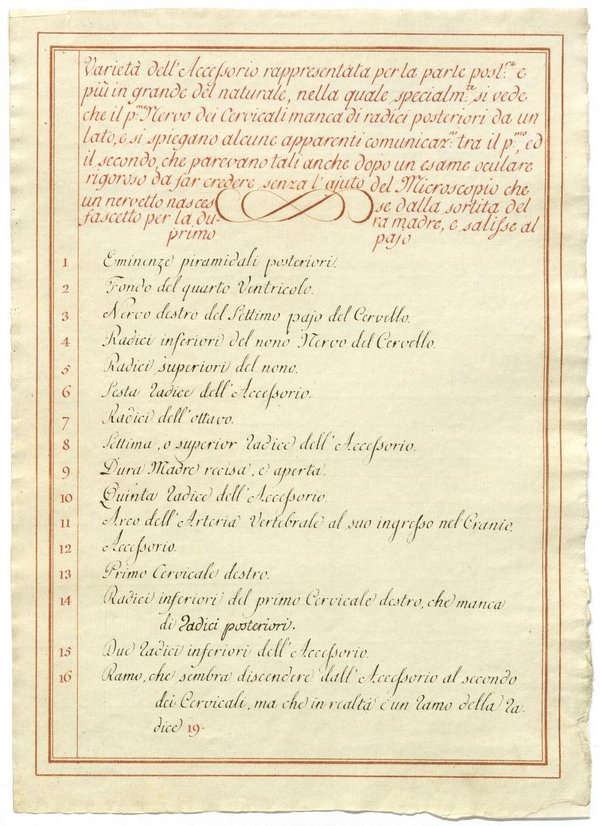 Varietà dell'Accessorio rappresentata per la parte post.re e
più in grande del naturale, nella quale specialm.te si vede
che il p.mo Nervo dei Cervicali manca di radici posteriori da un
lato, e si spiegano alcune apparenti comunicaz.ni tra il p.mo, ed
il secondo, che parevano tali anche dopo un esame oculare
rigoroso da far credere senza l'ajuto del Microscopio che
un nervetto nasces se dalla sortita del
fascetto per la du- ra madre, e salisse al
primo pajo
1 Eminenze piramidali posteriori.
2 Fondo del quarto Ventricolo.
3 Nervo destro del Settimo pajo del Cervello.
4 Radici inferiori del nono Nervo del Cervello.
5 Radici superiori del nono.
6 Sesta radice dell'Accessorio.
7 Radici dell'ottavo.
8 Settima, o superior radice dell'Accessorio.
9 Dura Madre recisa, e aperta.
10 Quinta radice dell'Accessorio.
11 Arco dell'Arteria Vertebrale al suo ingresso nel Cranio.
12 Accessorio.
13 Primo Cervicale destro.
14 Radici inferiori del primo Cervicale destro, che manca
di radici posteriori.
15 Due radici inferiori dell'Accessorio.
16 Ramo, che sembra discendere dall'Accessorio al secondo
dei Cervicali, ma che in realtà è un ramo della ra-
dice 19.